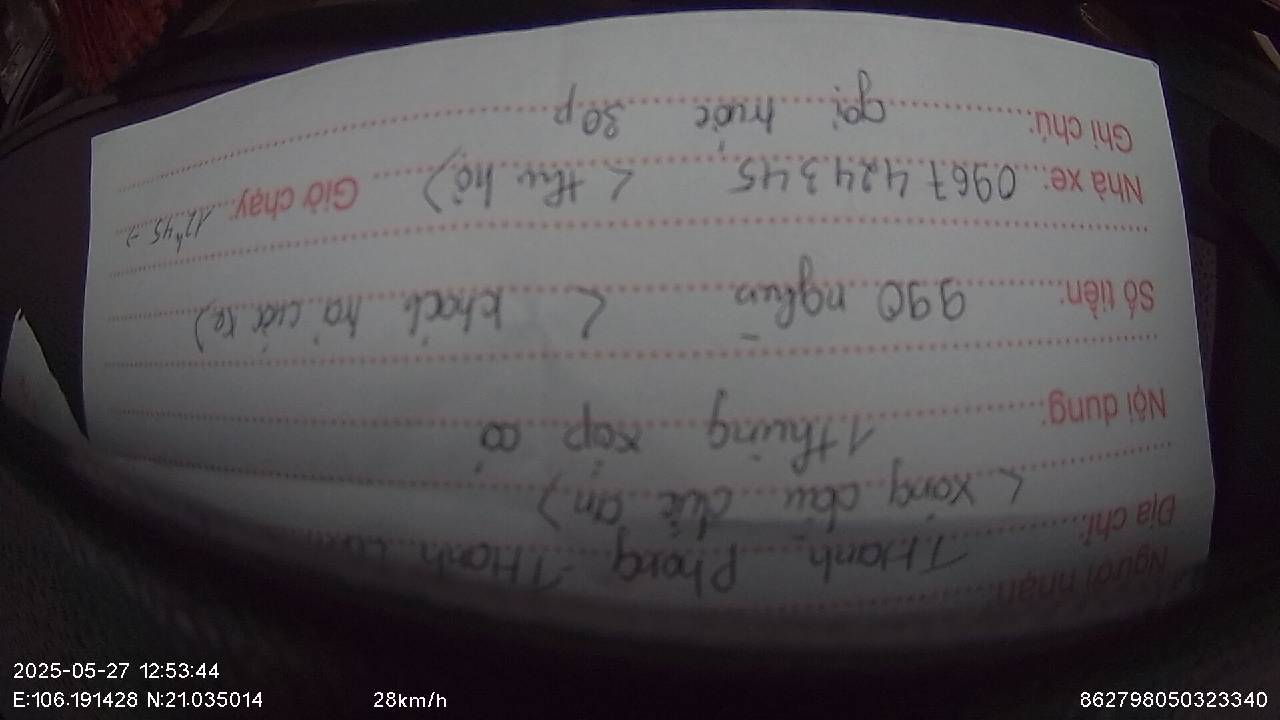 Người nhận:
Địa chỉ: Thanh Phong - Thanh
( xông dầu đức an )
Nội dung: 1 thùng xốp cá
Số tiền: 990 nghìn ( khách trả cước xe )
Nhà xe: 0967 424345 ( thu hộ ) Giờ chạy: 12h45
Ghi chú: gọi trước 30p
2025-05-27 12:53:44
E:106.191428 N:21.035014 28km/h 862798050323340